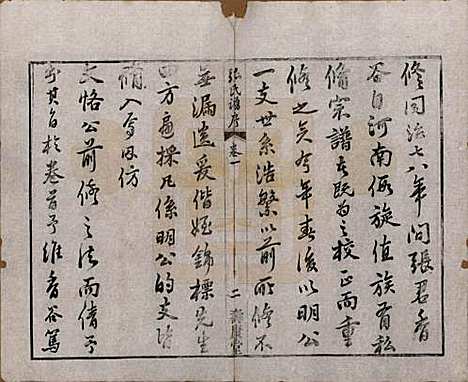 修同治七八年間張君香
谷自河南假旋值族有私
脩宗譜者既為之校正而重
脩之矣今年春復以明公
一支世系浩繁以前所脩不
張氏譜序 卷一 二
無漏遺爰偕姪錦標先生
四方遍採凡係明公的支皆
脩入焉因仿
文恪公前脩之法而倩予
弁其首於卷首予維香谷篤